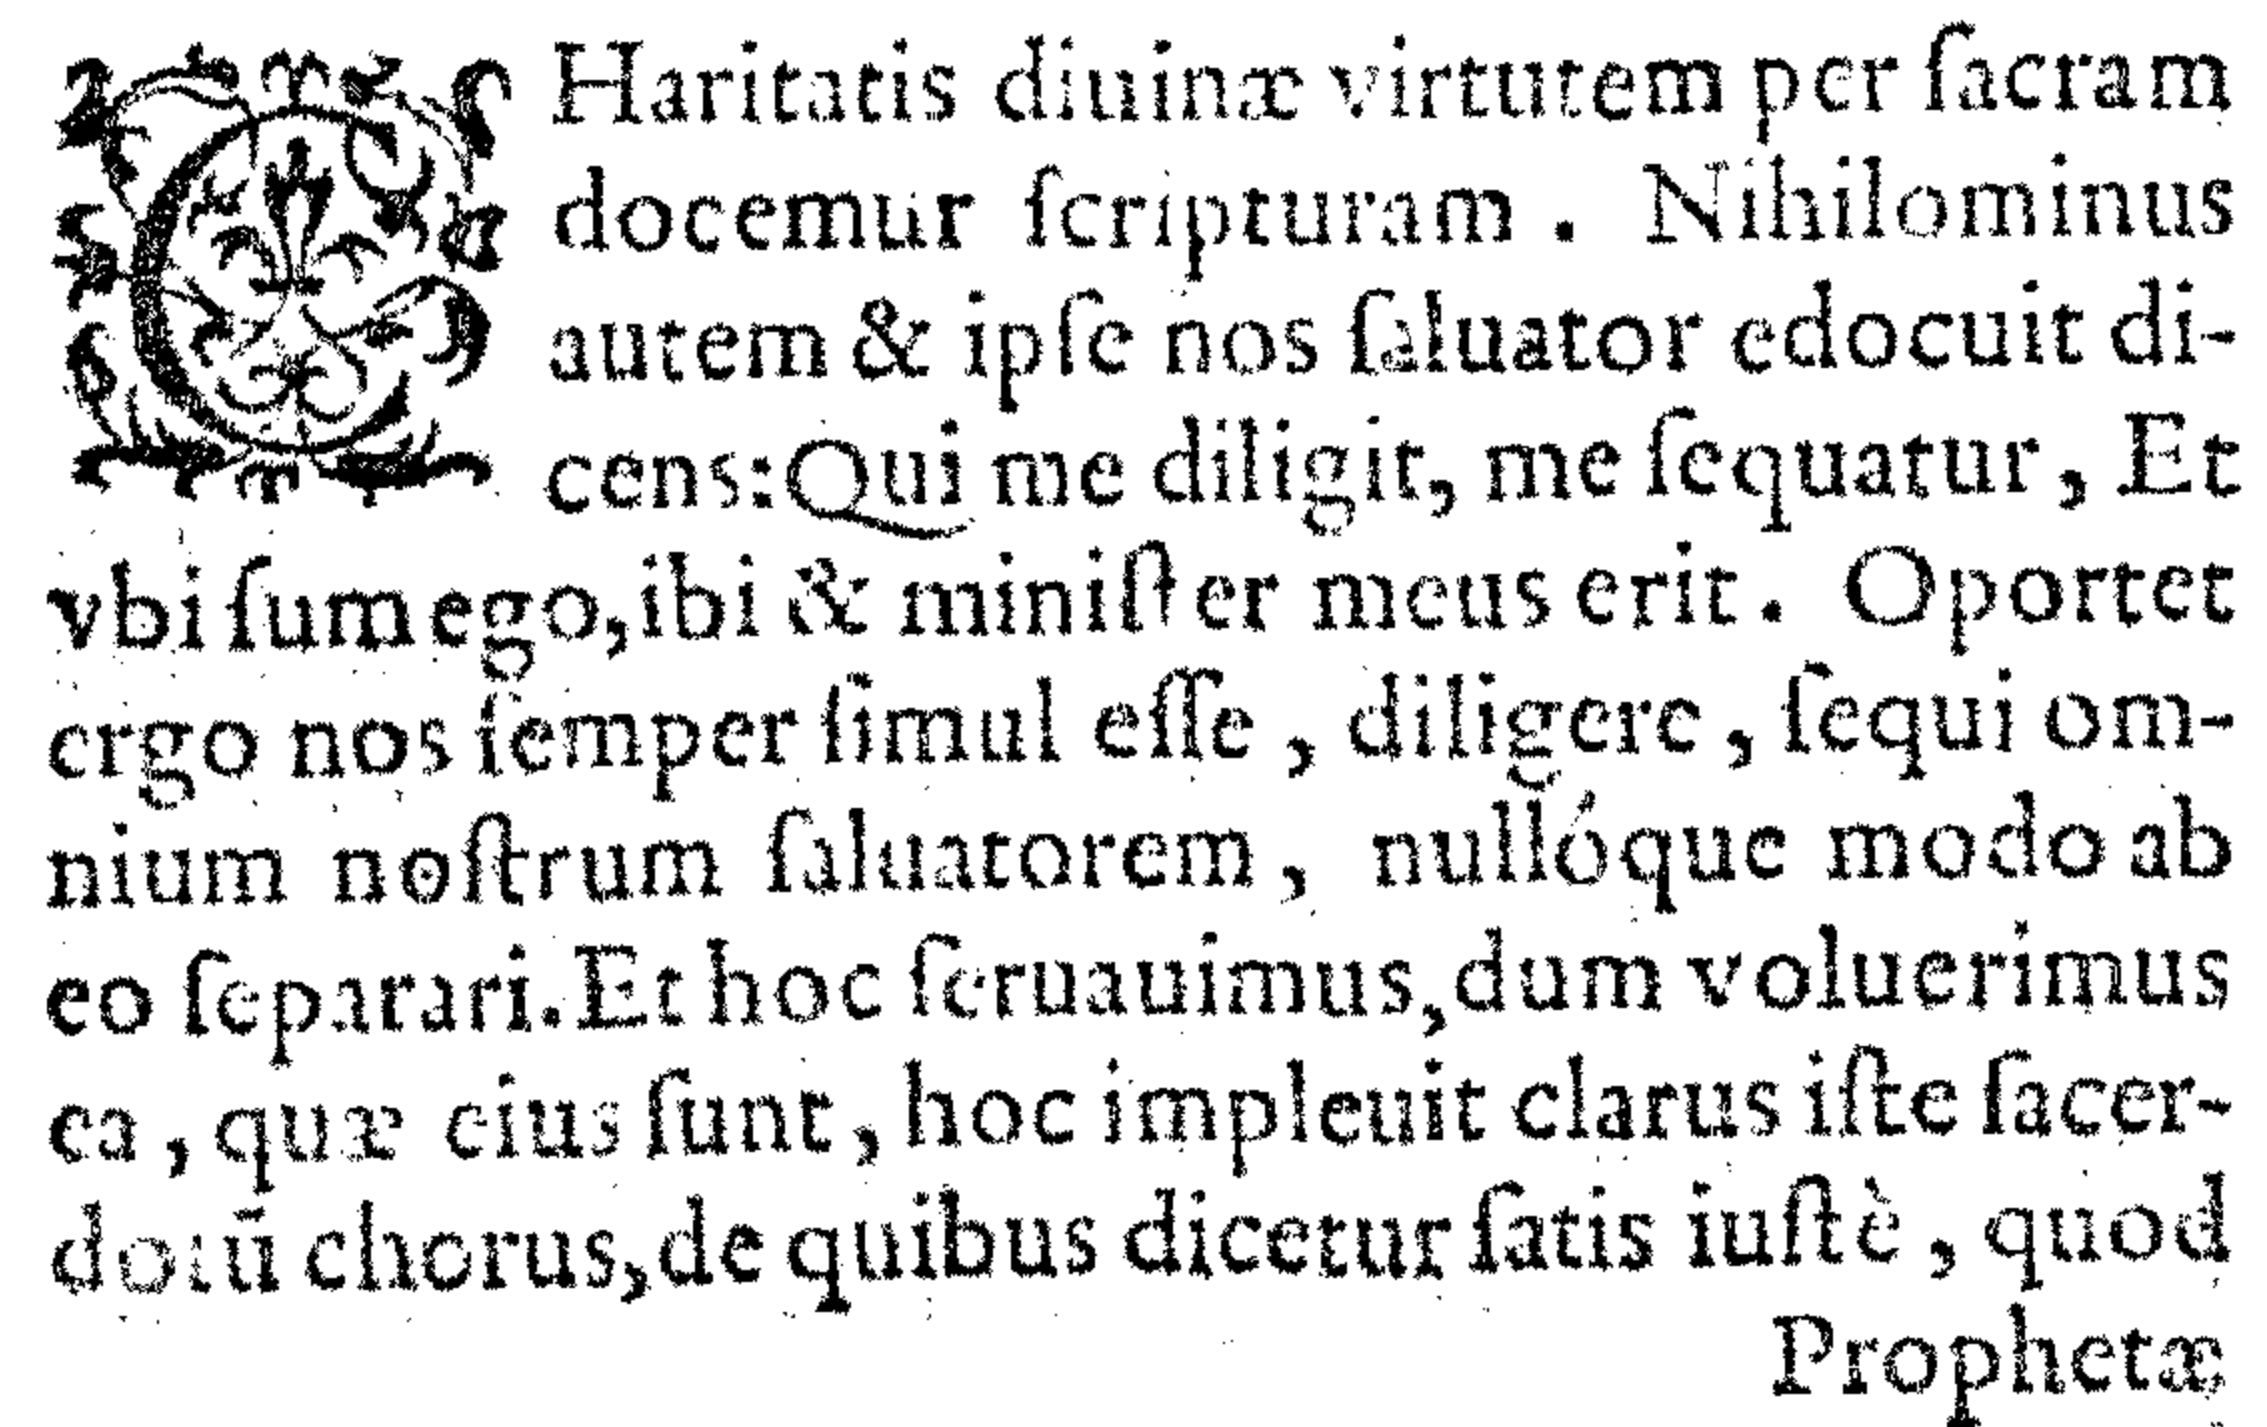 CHaritatis diuinæ virtutem per ſacram
docemur ſcripturam . Nihilominus
autem & ipſe nos ſaluator edocuit di-
cens: Qui me diligit, me ſequatur, Et
vbi ſum ego, ibi & miniſter meus erit. Oportet
ergo nos ſemper ſimul eſſe, diligere, ſequi om-
nium noſtrum ſaluatorem, nullóque modo ab
eo ſeparari. Et hoc ſeruauimus, dum voluerimus
ea, quæ eius ſunt, hoc impleuit clarus iſte ſacer-
dotū chorus, de quibus dicetur ſatis iuſtè, quod
Prophetæ